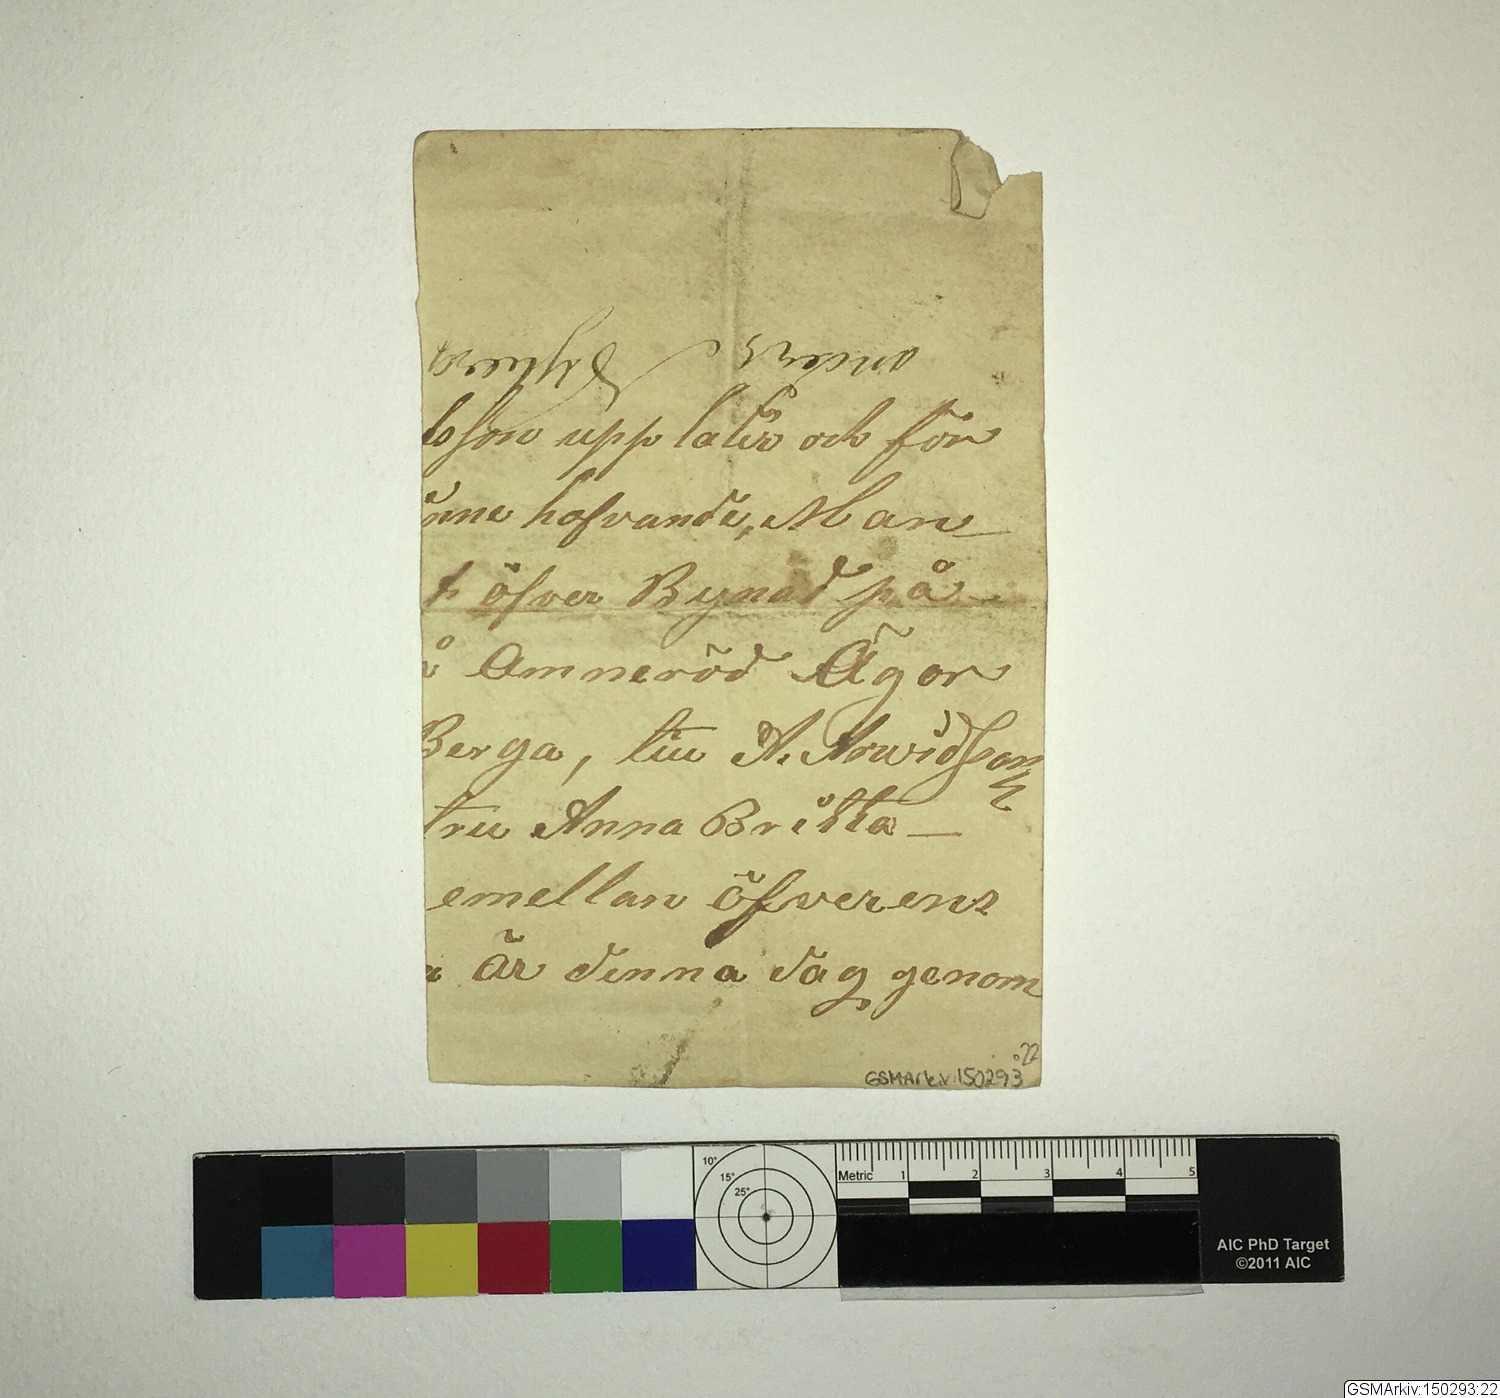 anders
son upp låter och för
hafvande, Man
t öfver Bynad på
å Amneröd Ägor
Berga, till A. Arwidsons
tru Anna Britta —
emellan öfverens
a är denna dag genom
GSMArkiv:150293
:22
10° 15° 25°
Metric 1 2 3 4 5
AIC PhD Target
©2011 AIC
GSMArkiv:150293:22